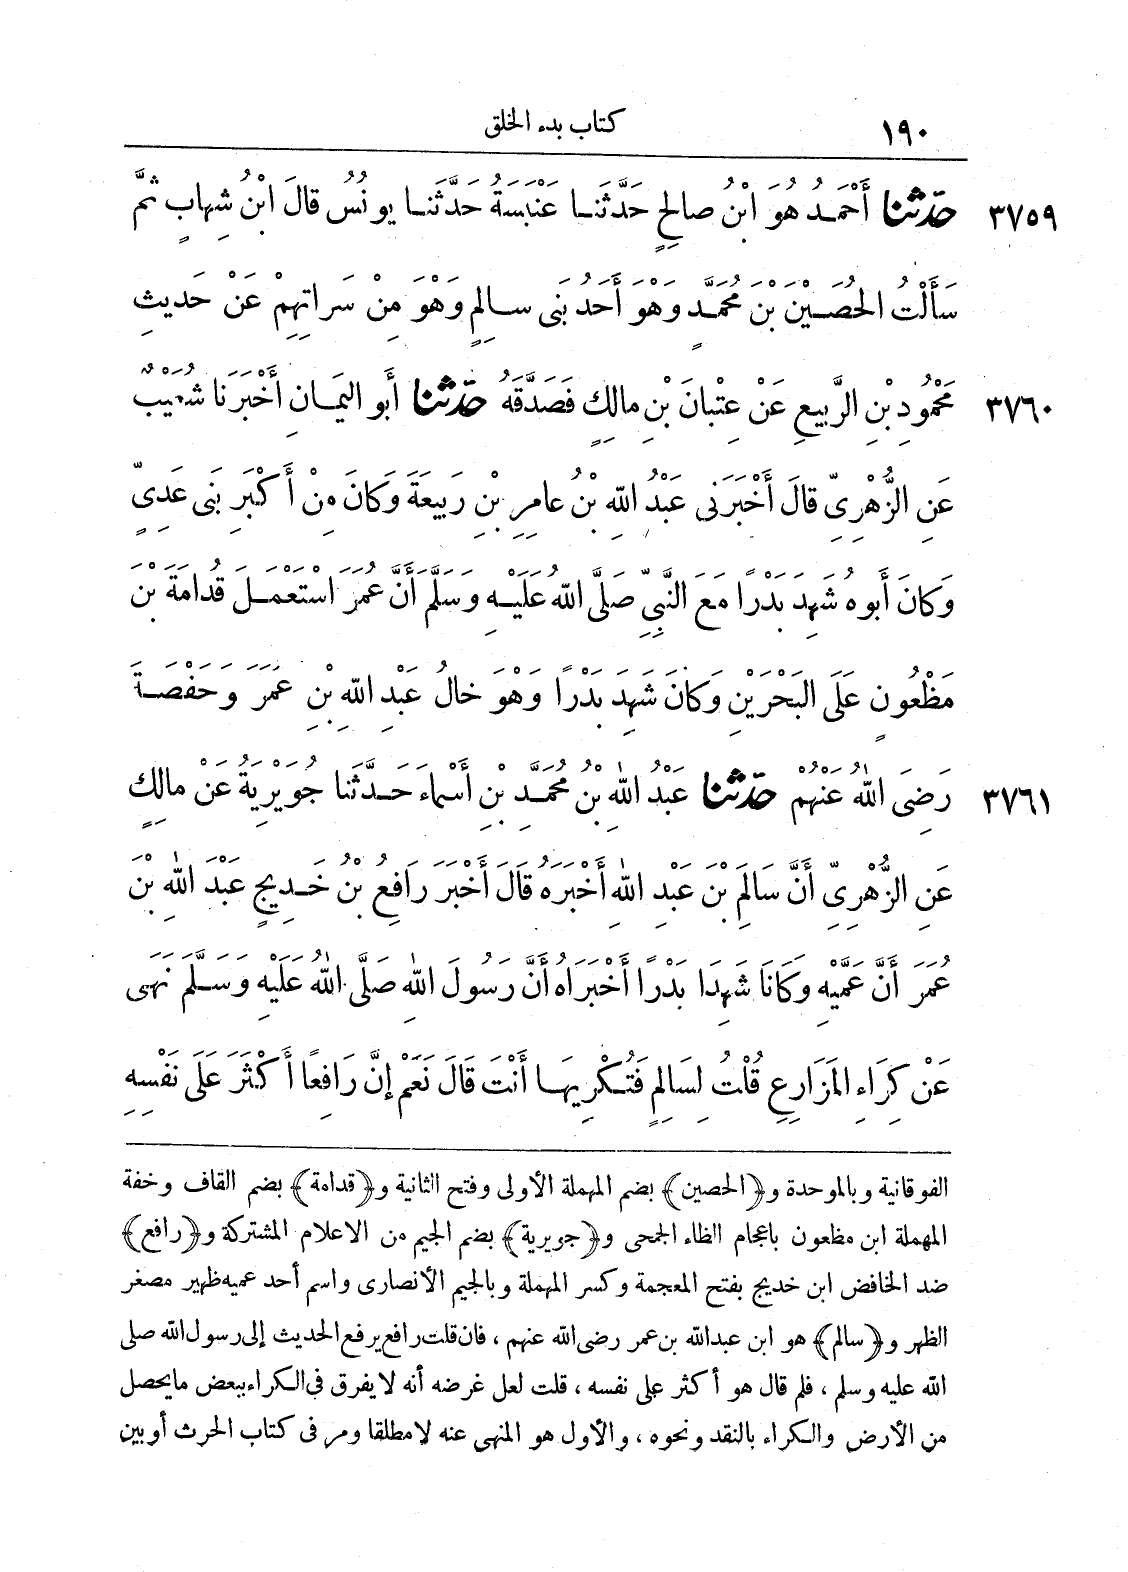 ١٩٠ كتاب بدء الخلق
٣٧٥٩ حَدَّثنا أَحْمَدُ هُوَ ابْنُ صالِحٍ حَدَّثَنا عَنْبَسَةُ حَدَّثَنا يونُسُ قالَ ابْنُ شِهابٍ ثُمَّ
سَأَلْتُ الحُصَيْنَ بْنَ مُحَمَّدٍ وَهْوَ أَحَدُ بَنى سالِمٍ وَهْوَ مِنْ سَراتِهِمْ عَنْ حَديثِ
٣٧٦٠ مَحْمُودِ بْنِ الرَّبيعِ عَنْ عِتْبانَ بْنِ مالِكٍ فَصَدَّقَهُ حَدَّثنا أَبو اليَمانِ أَخْبَرَنا شُعَيْبٌ
عَنِ الزُّهْرِىِّ قالَ أَخْبَرَنى عَبْدُ اللهِ بْنُ عامِرِ بْنِ رَبيعَةَ وَكانَ مِنْ أَكْبَرِ بَنى عَدِىٍّ
وَكانَ أَبوهُ شَهِدَ بَدْرًا مَعَ النَّبِىِّ صَلَّى اللهُ عَلَيْهِ وَسَلَّمَ أَنَّ عُمَرَ اسْتَعْمَلَ قُدامَةَ بْنَ
مَظْعُونٍ عَلَى البَحْرَيْنِ وَكانَ شَهِدَ بَدْرًا وَهْوَ خالُ عَبْدِ اللهِ بْنِ عُمَرَ وَحَفْصَةَ
٣٧٦١ رَضِىَ اللهُ عَنْهُمْ حَدَّثنا عَبْدُ اللهِ بْنُ مُحَمَّدِ بْنِ أَسْماءَ حَدَّثَنا جُوَيْرِيَةُ عَنْ مالِكٍ
عَنِ الزُّهْرِىِّ أَنَّ سَالِمَ بْنَ عَبْدِ اللهِ أَخْبَرَهُ قَالَ أَخْبَرَ رافِعُ بْنُ خَدِيجٍ عَبْدَ اللهِ بْنَ
عُمَرَ أَنَّ عَمَّيْهِ وَكَانَا شَهِدَا بَدْرًا أَخْبَرَاهُ أَنَّ رَسُولَ اللهِ صَلَّى اللهُ عَلَيْهِ وَسَلَّمَ نَهَى
عَنْ كِرَاءِ المَزَارِعِ قُلْتُ لِسَالِمٍ فَتُكْرِيهَا أَنْتَ قَالَ نَعَمْ إِنَّ رَافِعًا أَكْثَرَ عَلَى نَفْسِهِ
الفوقانية وبالموحدة و﴿الحصين﴾ بضم المهملة الأولى وفتح الثانية و﴿قدامة﴾ بضم القاف وخفة
المهملة ابن مظعون باعجام الظاء الجمحى و﴿جويرية﴾ بضم الجيم من الاعلام المشتركة و﴿رافع﴾
ضد الخافض ابن خديج بفتح المعجمة وكسر المهملة وبالجيم الأنصارى واسم أحد عميه ظهير مصغر
الظهر و﴿سالم﴾ هو ابن عبدالله بن عمر رضى الله عنهم ، فان قلت رافع يرفع الحديث إلى رسول الله صلى
الله عليه وسلم ، فلم قال هو أكثر على نفسه ، قلت لعل غرضه أنه لا يفرق فى الكراء ببعض ما يحصل
من الأرض والكراء بالنقد ونحوه ، والأول هو المنهى عنه لامطلقا ومر فى كتاب الحرث أو بين